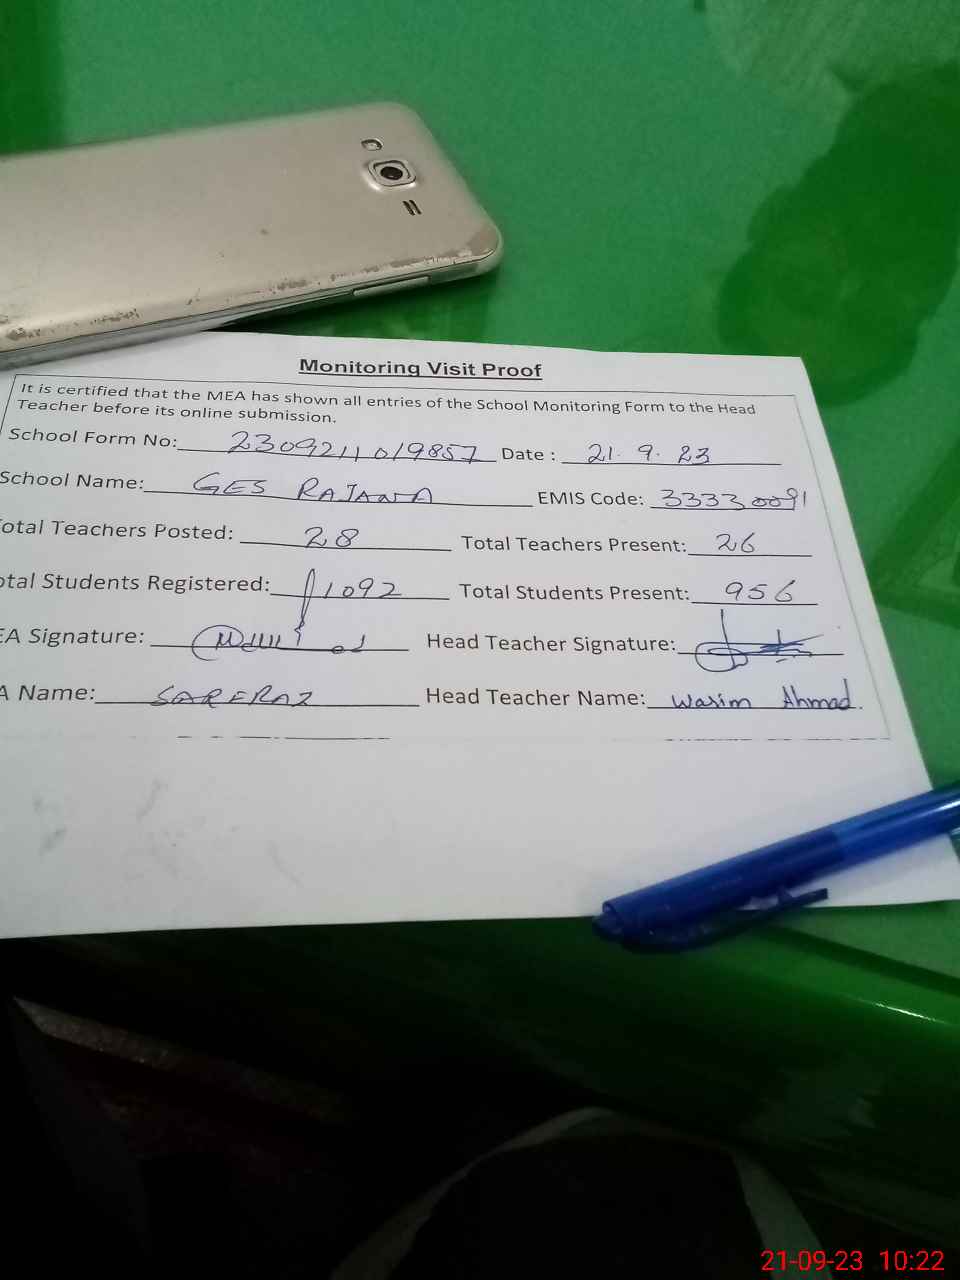 Monitoring Visit Proof
It is certified that the MEA has shown all entries of the School Monitoring Form to the Head
Teacher before its online submission.
School Form No: 2309211019857 Date : 21. 9. 23
School Name: GES RAJANA EMIS Code: 33330091
otal Teachers Posted: 28 Total Teachers Present: 26
otal Students Registered: 1092 Total Students Present: 956
EA Signature: Head Teacher Signature:
A Name: SARFRAZ Head Teacher Name: Wasim Ahmad.
21-09-23 10:22